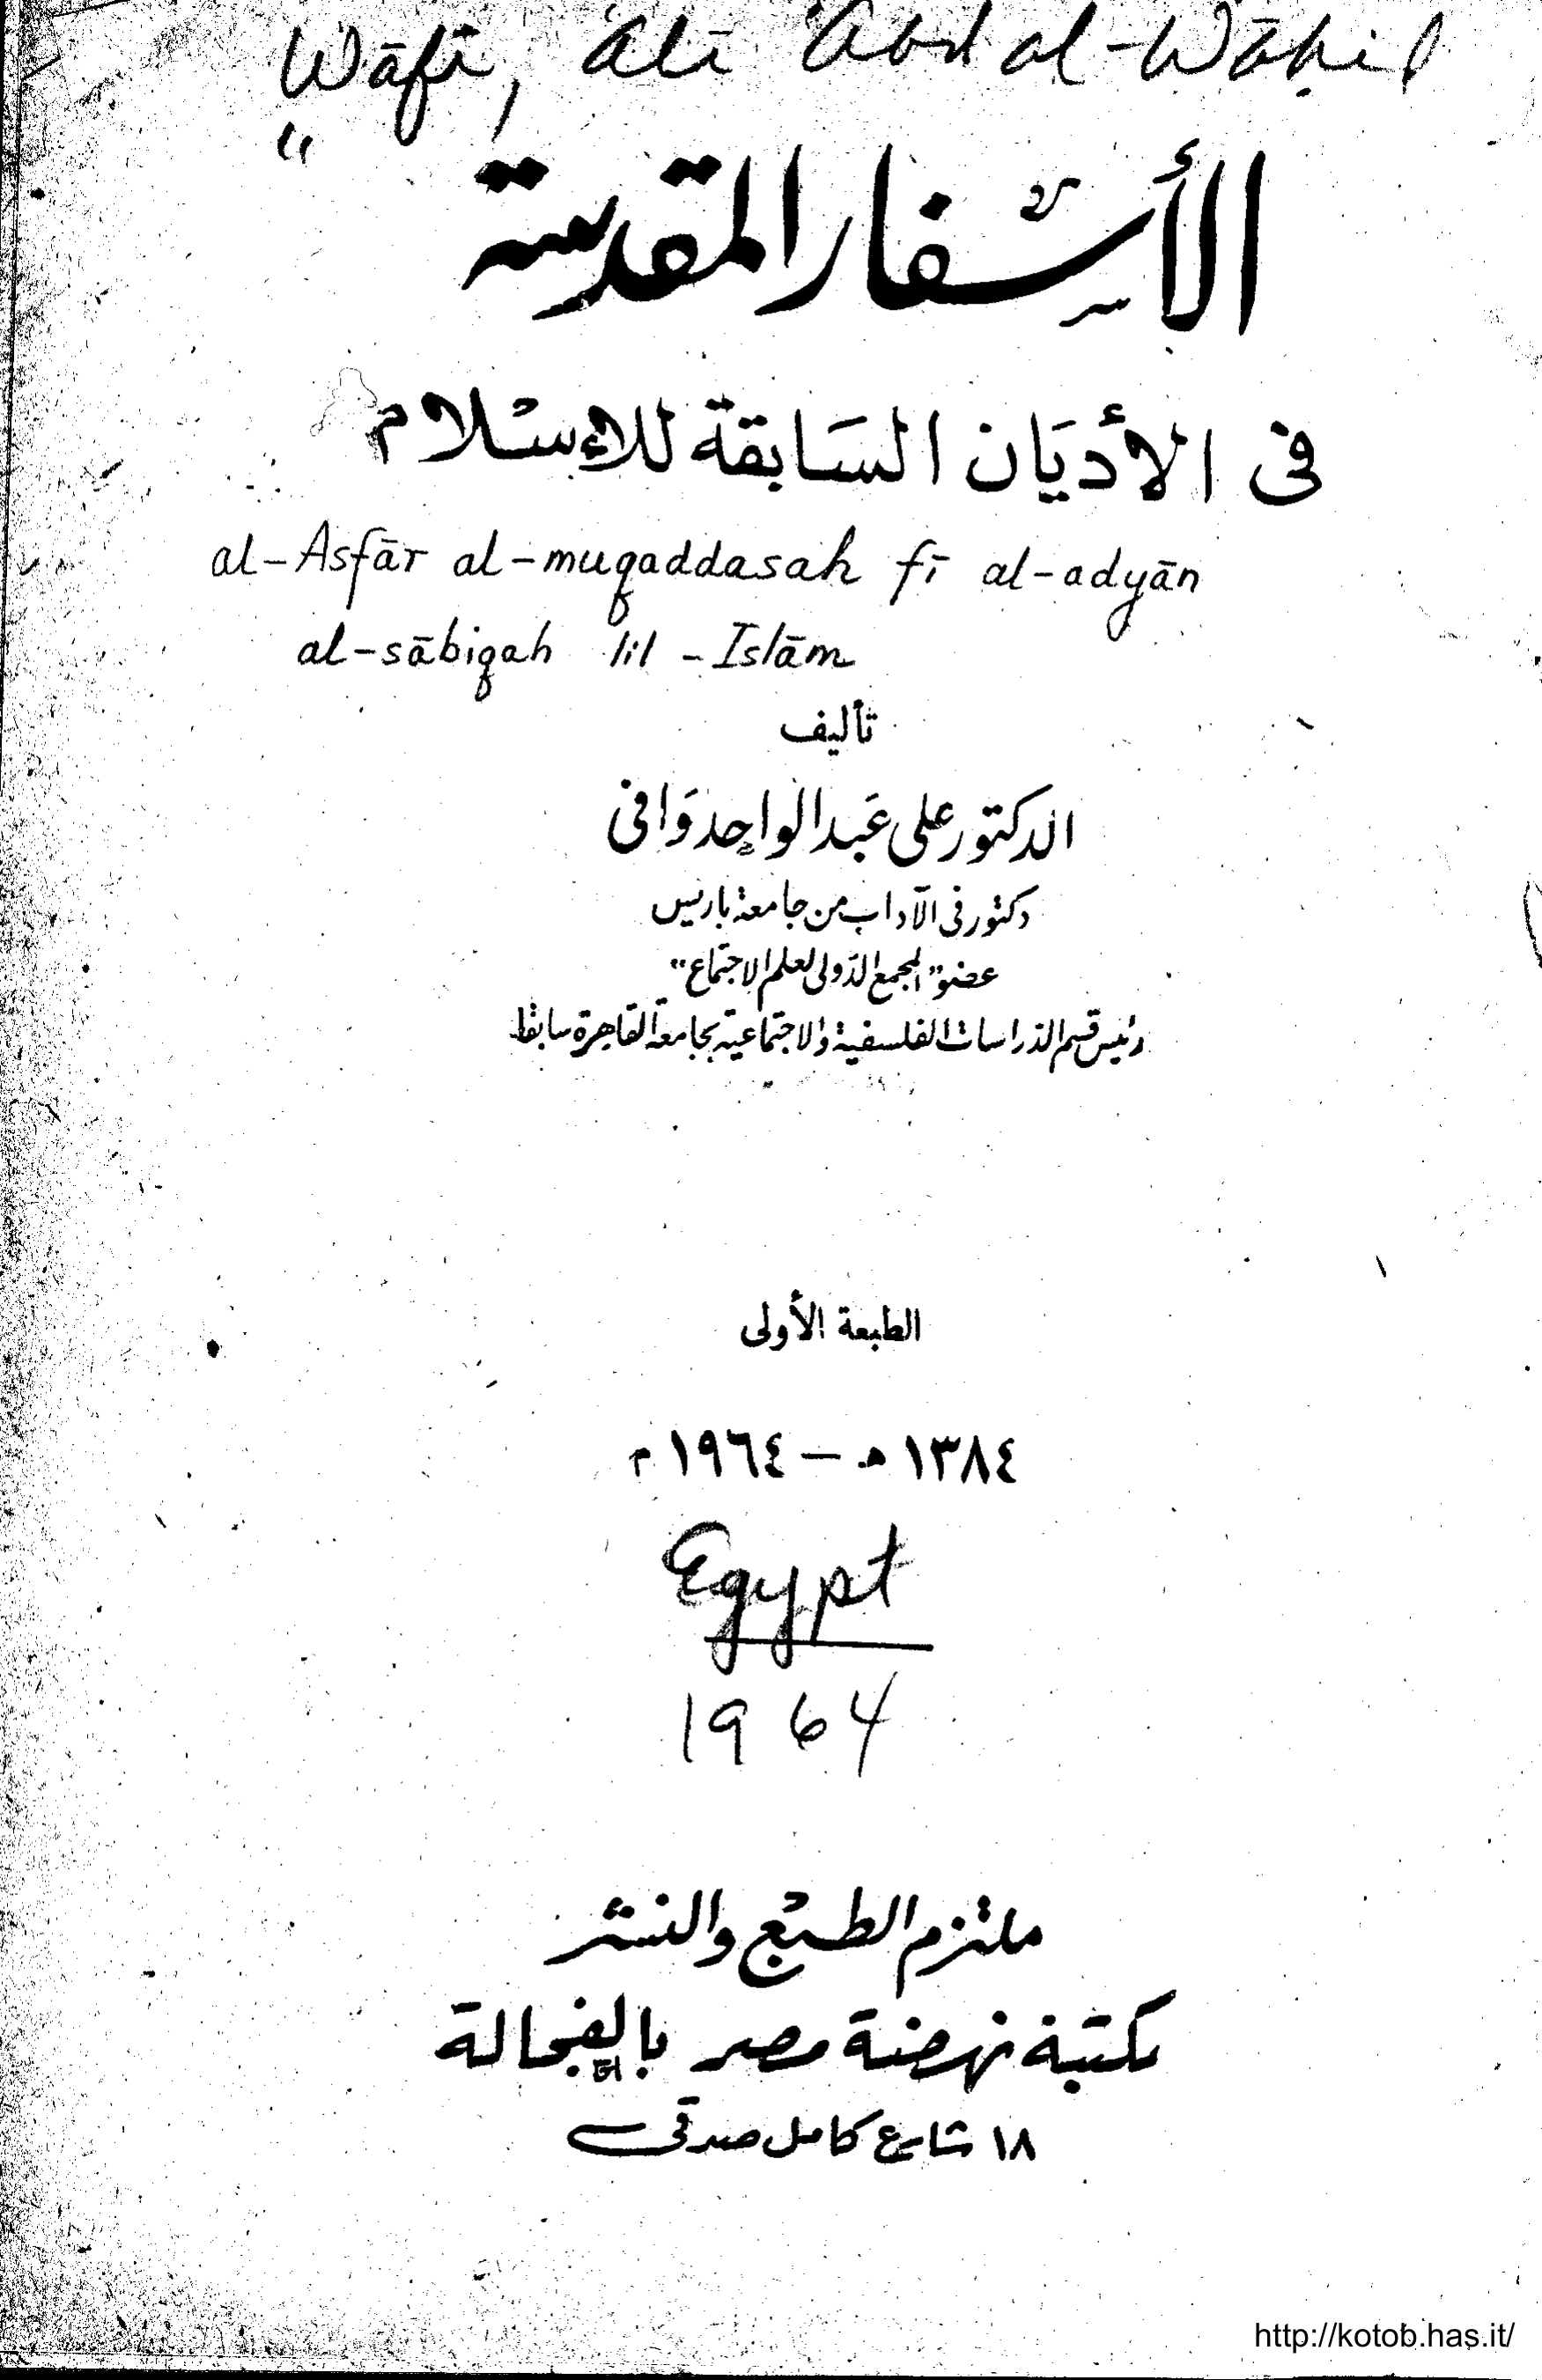 Wāfī, ʿAlī ʿAbd al-Wāḥid
الأسفار المقدسة
فى الأديَان السَابقة للإسْلام
al-Asfār al-muqaddasah fī al-adyān
al-sābiqah lil-Islām
تأليف
الدكتور على عَبد الواحِد وَافى
دكتور فى الآداب من جامعة باريس
عضو "المجمع الدولى لعلم الاجتماع"
رئيس قسم الدراسات الفلسفية والاجتماعية بجامعة القاهرة سابقا
الطبعة الأولى
١٣٨٤ هـ — ١٩٦٤ م
Egypt
1964
ملتزم الطبْع والنشر
مكتبة نهضة مصر بالفجالة
١٨ شارع كامل صدقى
http://kotob.has.it/